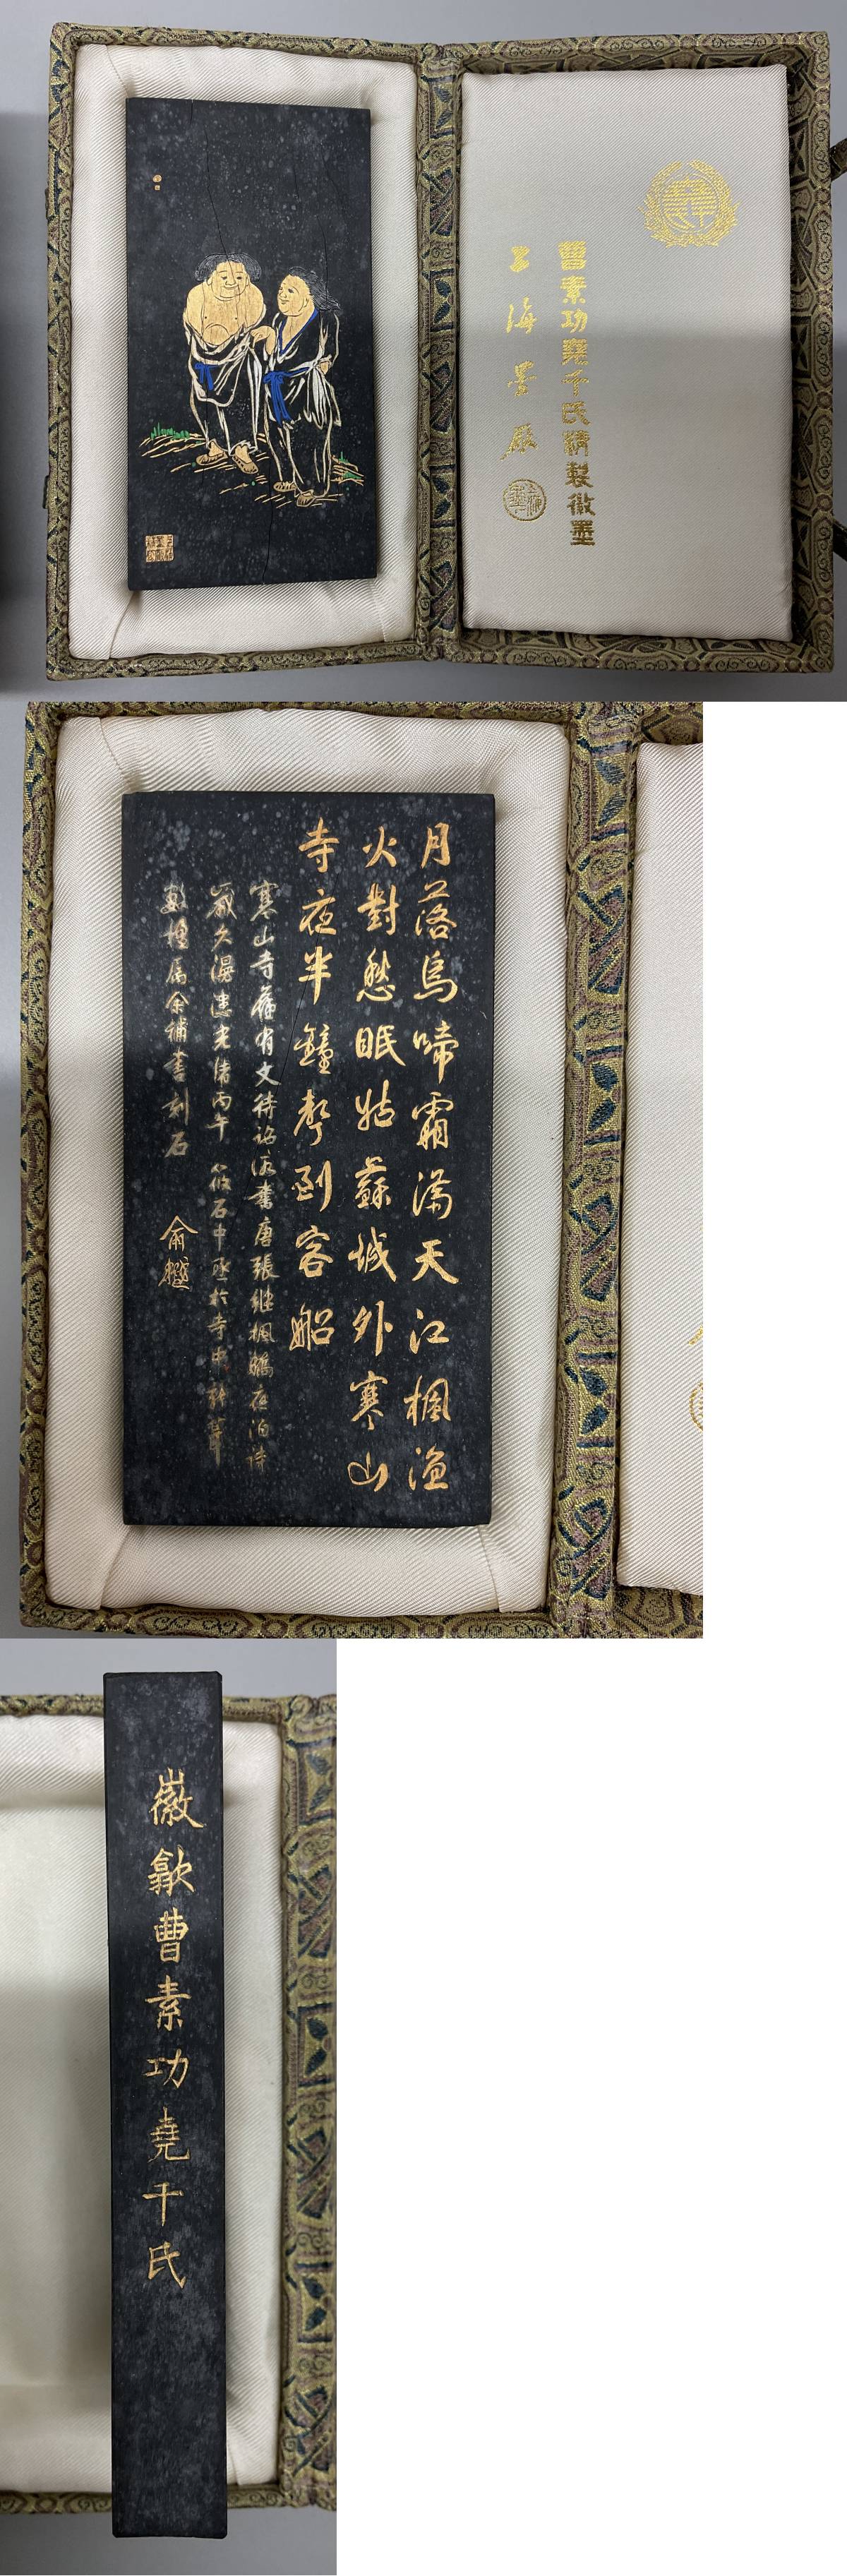 曹素功堯千氏精製徽墨
上海墨厰
月落烏啼霜滿天江楓漁
火對愁眠姑蘇城外寒山
寺夜半鐘聲到客船
寒山寺舊有文待詔所書唐張繼楓橋夜泊詩
歲久漫漶光緒丙午筱石中丞於寺中新葺
數楹屬余補書刻石
俞樾
徽歙曹素功堯千氏